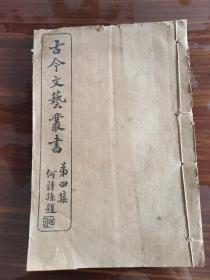 古今文藝叢書
第四集
何詩孫題